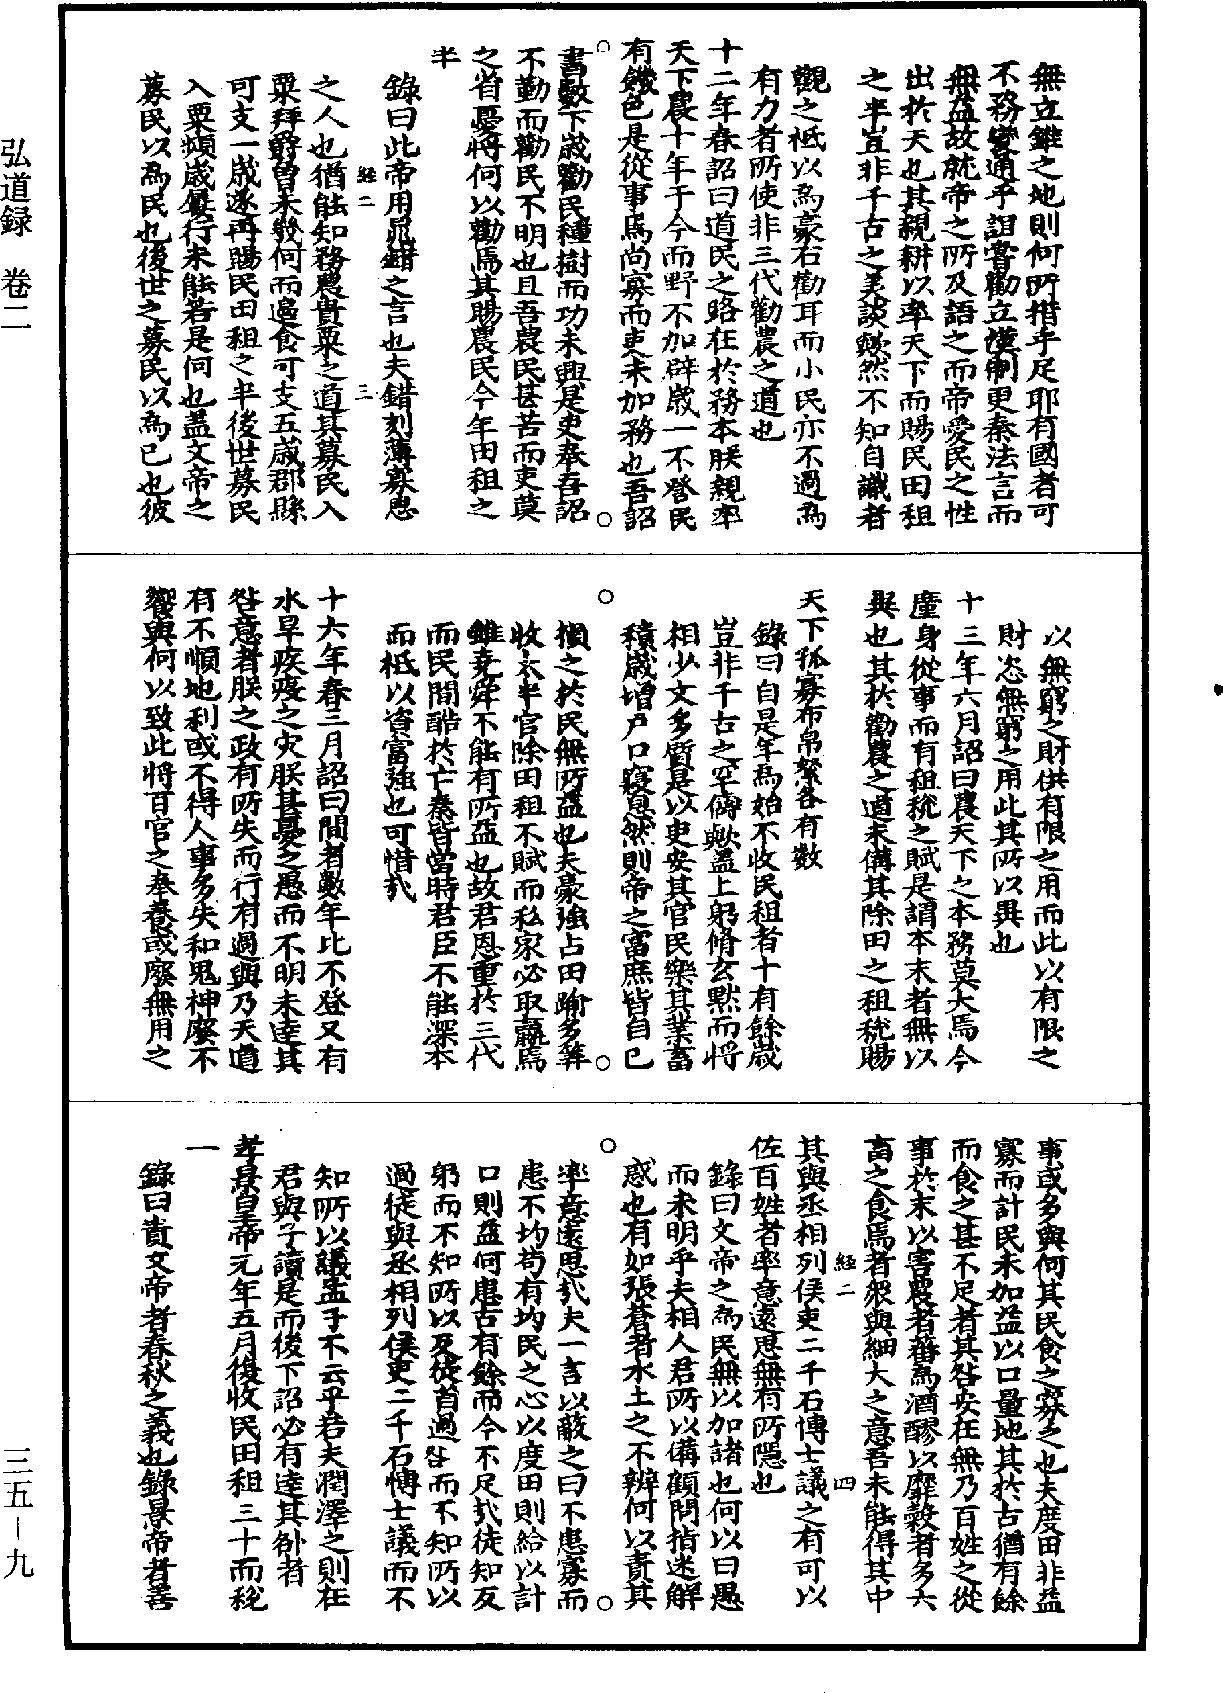 弘道録　卷二
三五－九
無立錐之地則何所措手足耶有國者可
不務變通乎詛嘗勸立漢制更秦法言而
無益故就帝之所及語之而帝愛民之性
出於天也其親耕以率天下而賜民田租
之半豈非千古之美談歟然不知自識者
觀之祗以爲豪右勸耳而小民亦不過爲
有力者所使非三代勸農之道也
十二年春詔曰道民之路在於務本朕親率
天下農十年于今而野不加辟歲一不登民
有饑色是從事焉尚寡而吏未加務也吾詔
書數下歲勸民種樹而功未興是吏奉吾詔
不勤而勸民不明也且吾農民甚苦而吏莫
之省憂將何以勸焉其賜農民今年田租之
半
錄曰此帝用晁錯之言也夫錯刻薄寡恩
經二　三
之人也猶能知務農貴粟之道其募民入
粟拜爵曾未幾何而邊食可支五歲郡縣
可支一歲遂再賜民田租之半後世募民
入粟頻歲屢行未能若是何也蓋文帝之
募民以爲民也後世之募民以爲已也彼
以無窮之財供有限之用而此以有限之
財恣無窮之用此其所以異也
十三年六月詔曰農天下之本務莫大焉今
廑身從事而有租稅之賦是謂本末者無以
異也其於勸農之道未備其除田之租稅賜
天下孤寡布帛絮各有數
錄曰自是年爲始不收民租者十有餘歲
豈非千古之罕儔歟蓋上躬脩玄黙而將
相少文多質是以吏安其官民樂其業畜
積歲增戶口寖息然則帝之富庶皆自已
損之於民無所益也夫豪強占田踰多筭
收太半官除田租不賦而私家必取贏焉
雖堯舜不能有所益也故君恩重於三代
而民間酷於亡秦皆當時君臣不能深本
而祗以資富強也可惜哉
十六年春三月詔曰間者數年比不登又有
水旱疾疫之灾朕甚憂之愚而不明未達其
咎意者朕之政有所失而行有過與乃天道
有不順地利或不得人事多失和鬼神廢不
饗與何以致此將百官之奉養或廢無用之
事或多與何其民食之寡乏也夫度田非益
寡而計民未加益以口量地其於古猶有餘
而食之甚不足者其咎安在無乃百姓之從
事於末以害農者蕃爲酒醪以靡穀者多六
畜之食焉者衆與細大之意吾未能得其中
經二　四
其與丞相列侯吏二千石博士議之有可以
佐百姓者率意遠思無有所隱也
錄曰文帝之爲民無以加諸也何以曰愚
而未明乎夫相人君所以備顧問指迷解
惑也有如張蒼者水土之不辨何以責其
率意遠思哉夫一言以蔽之曰不患寡而
患不均苟有均民之心以度田則給以計
口則益何患古有餘而今不足哉徒知反
躬而不知所以反徒首過咎而不知所以
過徒與丞相列侯吏二千石博士議而不
知所以議孟子不云乎若夫潤澤之則在
君與子讀是而後下詔必有達其咎者
孝景皇帝元年五月復收民田租三十而稅
一
錄曰責文帝者春秋之義也錄景帝者善